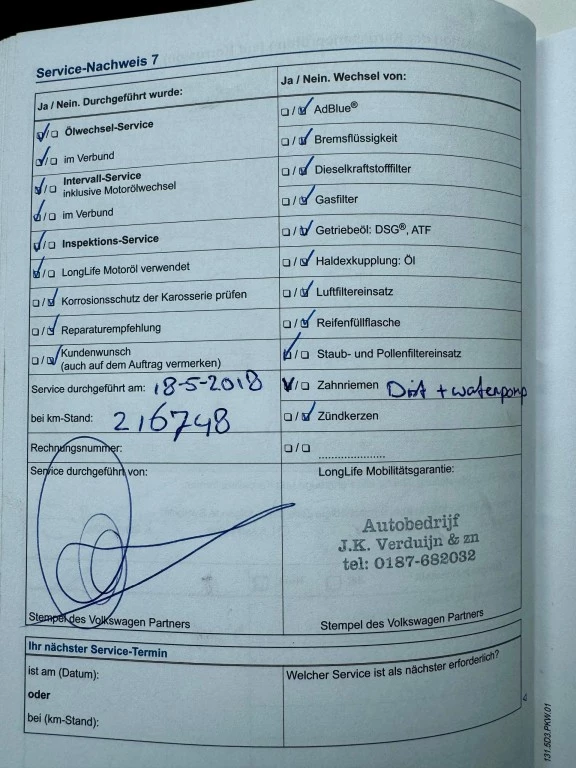 Service-Nachweis 7
Ja / Nein. Durchgeführt wurde:
Ölwechsel-Service
im Verbund
Intervall-Service
inklusive Motorölwechsel
im Verbund
Inspektions-Service
LongLife Motoröl verwendet
Korrosionsschutz der Karosserie prüfen
Reparaturempfehlung
Kundenwunsch
(auch auf dem Auftrag vermerken)
Service durchgeführt am: 18-5-2018
bei km-Stand: 216748
Rechnungsnummer:
Service durchgeführt von:
Stempel des Volkswagen Partners
Ja / Nein. Wechsel von:
AdBlue®
Bremsflüssigkeit
Dieselkraftstofffilter
Gasfilter
Getriebeöl: DSG®, ATF
Haldexkupplung: Öl
Luftfiltereinsatz
Reifenfüllflasche
Staub- und Pollenfiltereinsatz
Zahnriemen + waterpomp
Zündkerzen
LongLife Mobilitätsgarantie:
Autobedrijf
J.K. Verduijn & zn
tel: 0187-682032
Stempel des Volkswagen Partners
Ihr nächster Service-Termin
ist am (Datum):
oder
bei (km-Stand):
Welcher Service ist als nächster erforderlich?
131.5D3.PKW.01